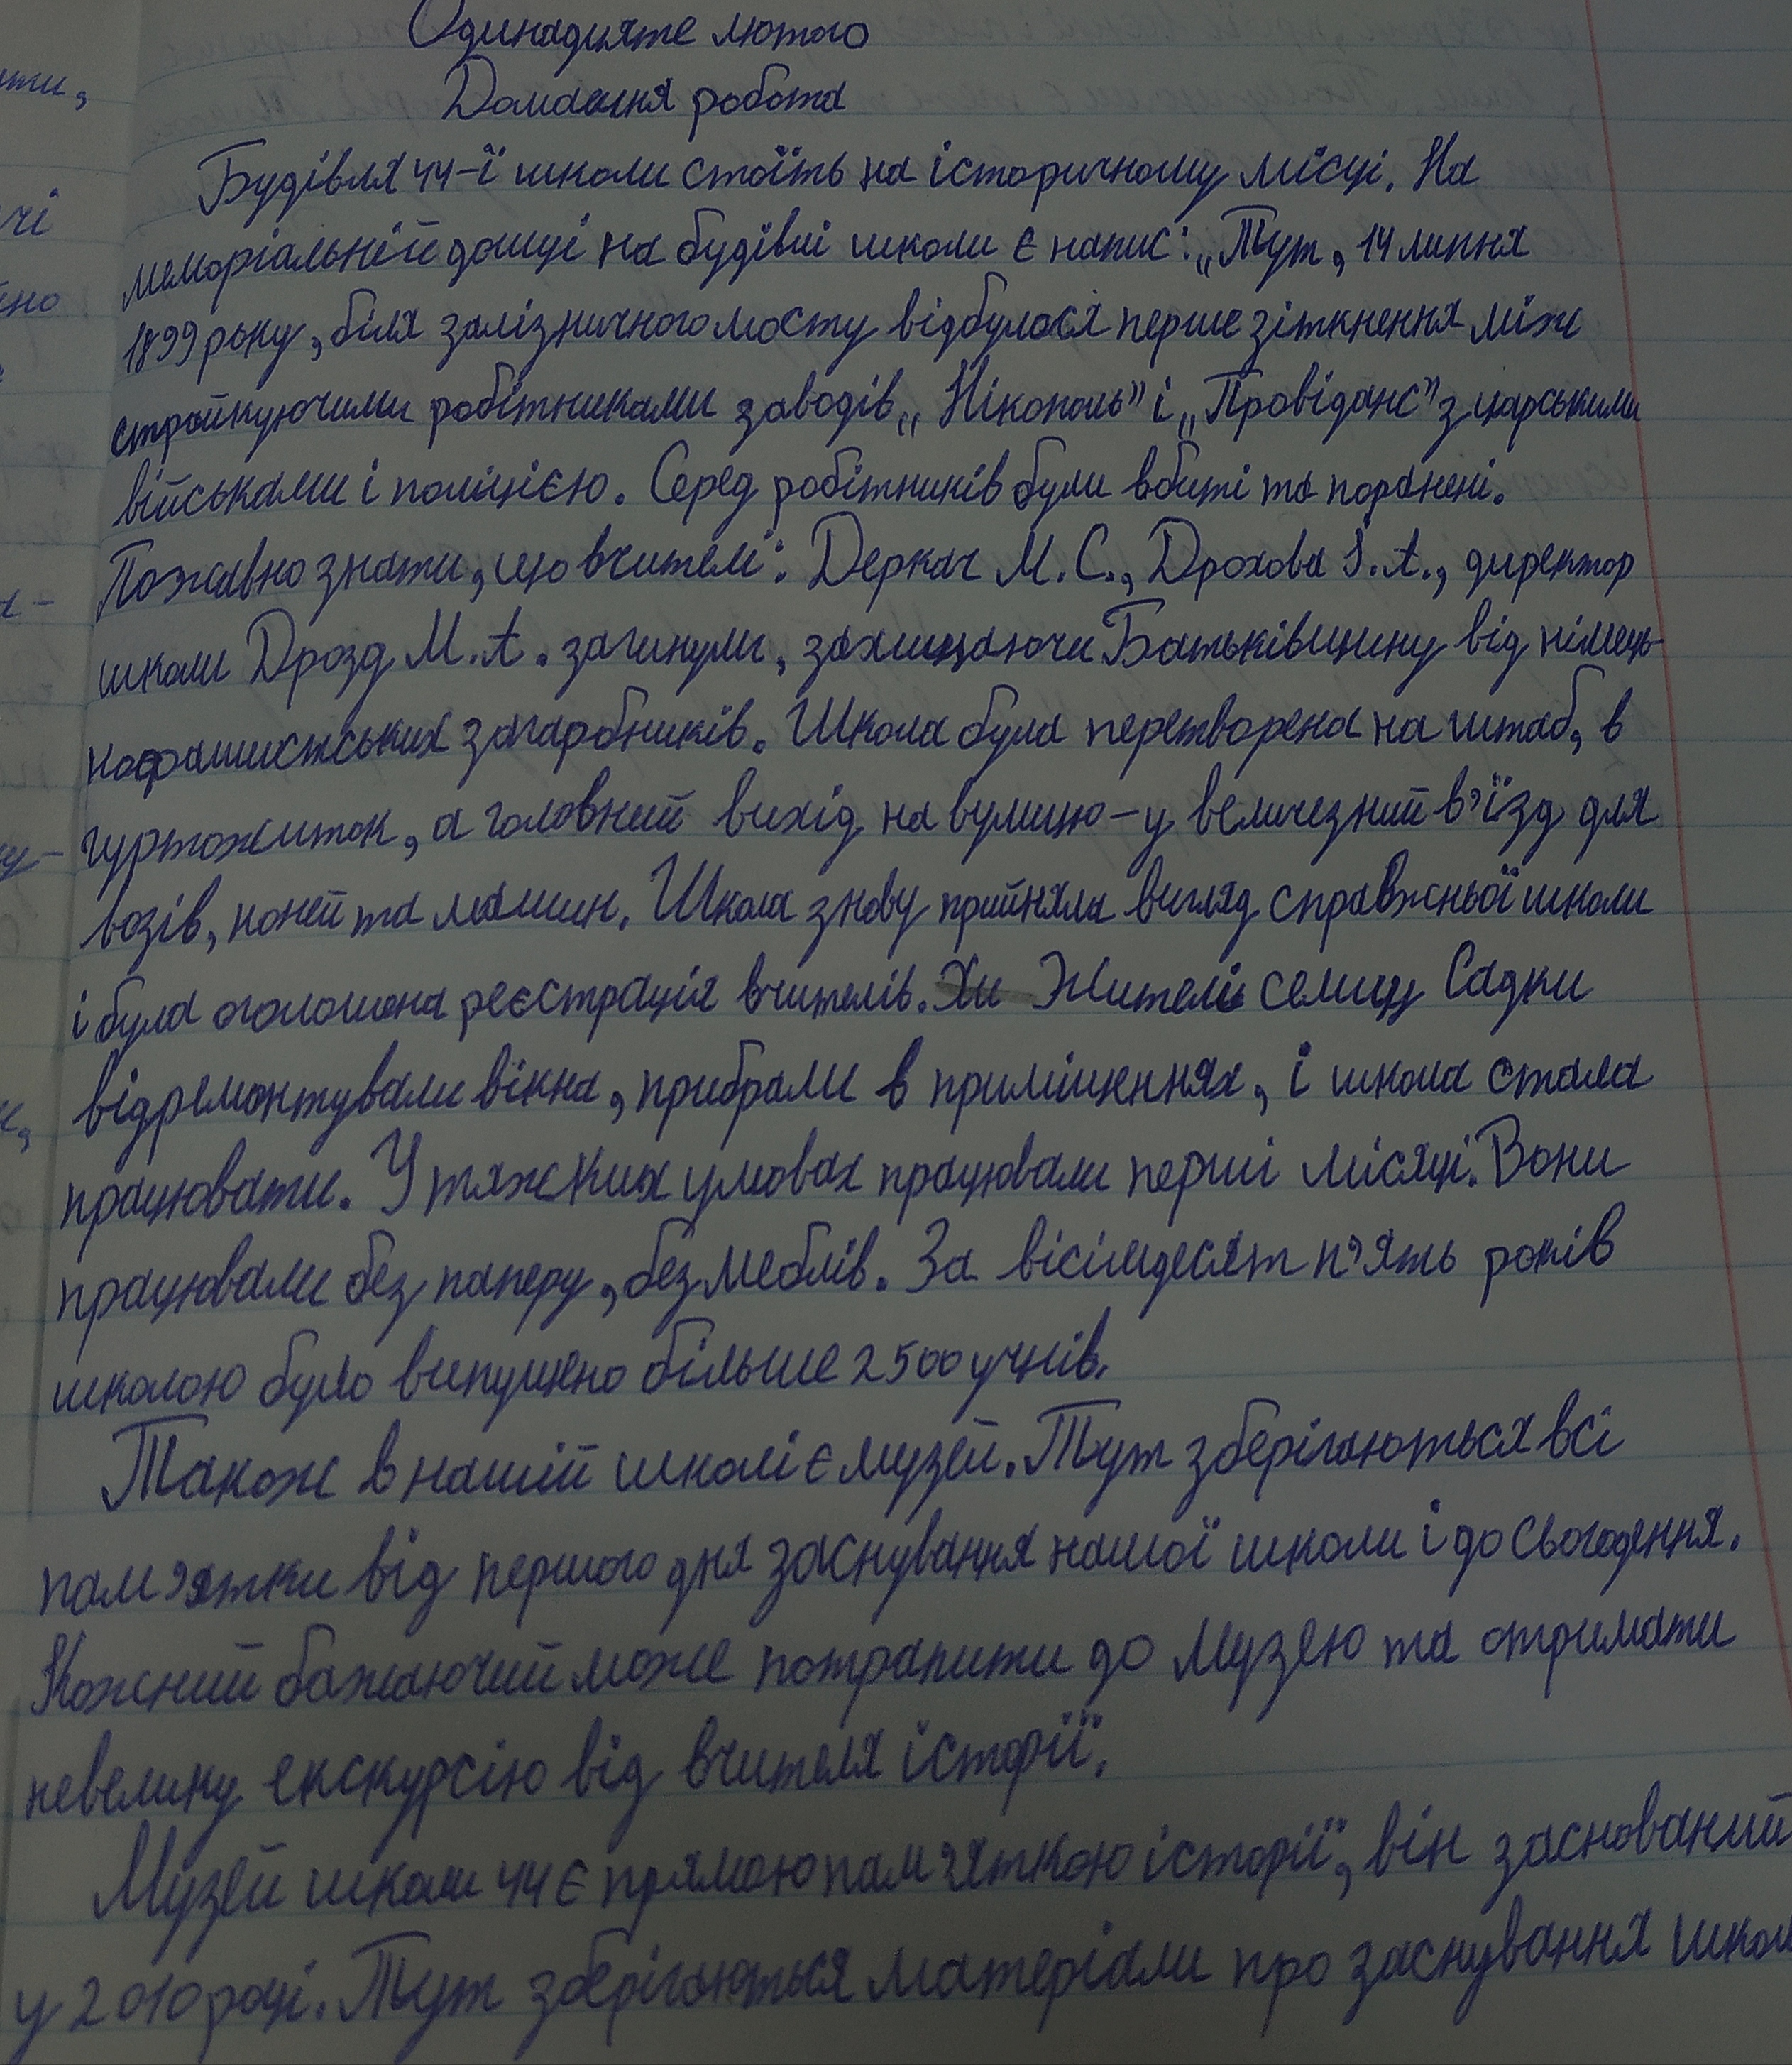 Одинадцяте лютого
Домашня робота
Будівля 44-ї школи стоїть на історичному місці. На
меморіальній дошці на будівлі школи є напис: „Тут, 14 липня
1899 року, біля залізничного мосту відбулося перше зіткнення між
страйкуючими робітниками заводів „Нікополь" і „Провіданс" з царськими
військами і поліцією. Серед робітників були вбиті та поранені.
Похавно знати, що вчителі: Деркач М.С., Дрохова І.А., директор
школи Дрозд М.А. загинули, захищаючи Батьківщину від німець-
кофашистських загарбників. Школа була перетворена на штаб, в
гуртожиток, а головний вихід на вулицю – у величезний в'їзд для
возів, коней та машин. Школа знову прийняла вигляд справжньої школи
і була оголошена реєстрація вчителів. Жителі селищ Садки
відремонтували вікна, прибрали в приміщеннях, і школа стала
працювати. У тяжких умовах працювали перші місяці. Вони
працювали без паперу, без меблів. За вісімдесят п'ять років
школою було випущено більше 2500 учнів.
Також в нашій школі є музей. Тут зберігаються всі
пам'ятки від першого дня заснування нашої школи і до сьогодення.
Кожний бажаючий може потрапити до музею та отримати
невелику екскурсію від вчителя історії.
Музей школи 44 є прямою пам'яткою історії, він заснований
у 2010 році. Тут зберігаються матеріали про заснування школ